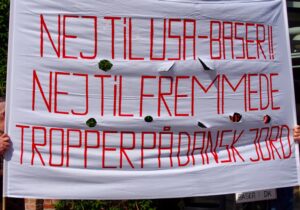 NEJ TIL USA-BASER!!
NEJ TIL FREMMEDE
TROPPER PÅ DANSK JORD!
BASER I DK